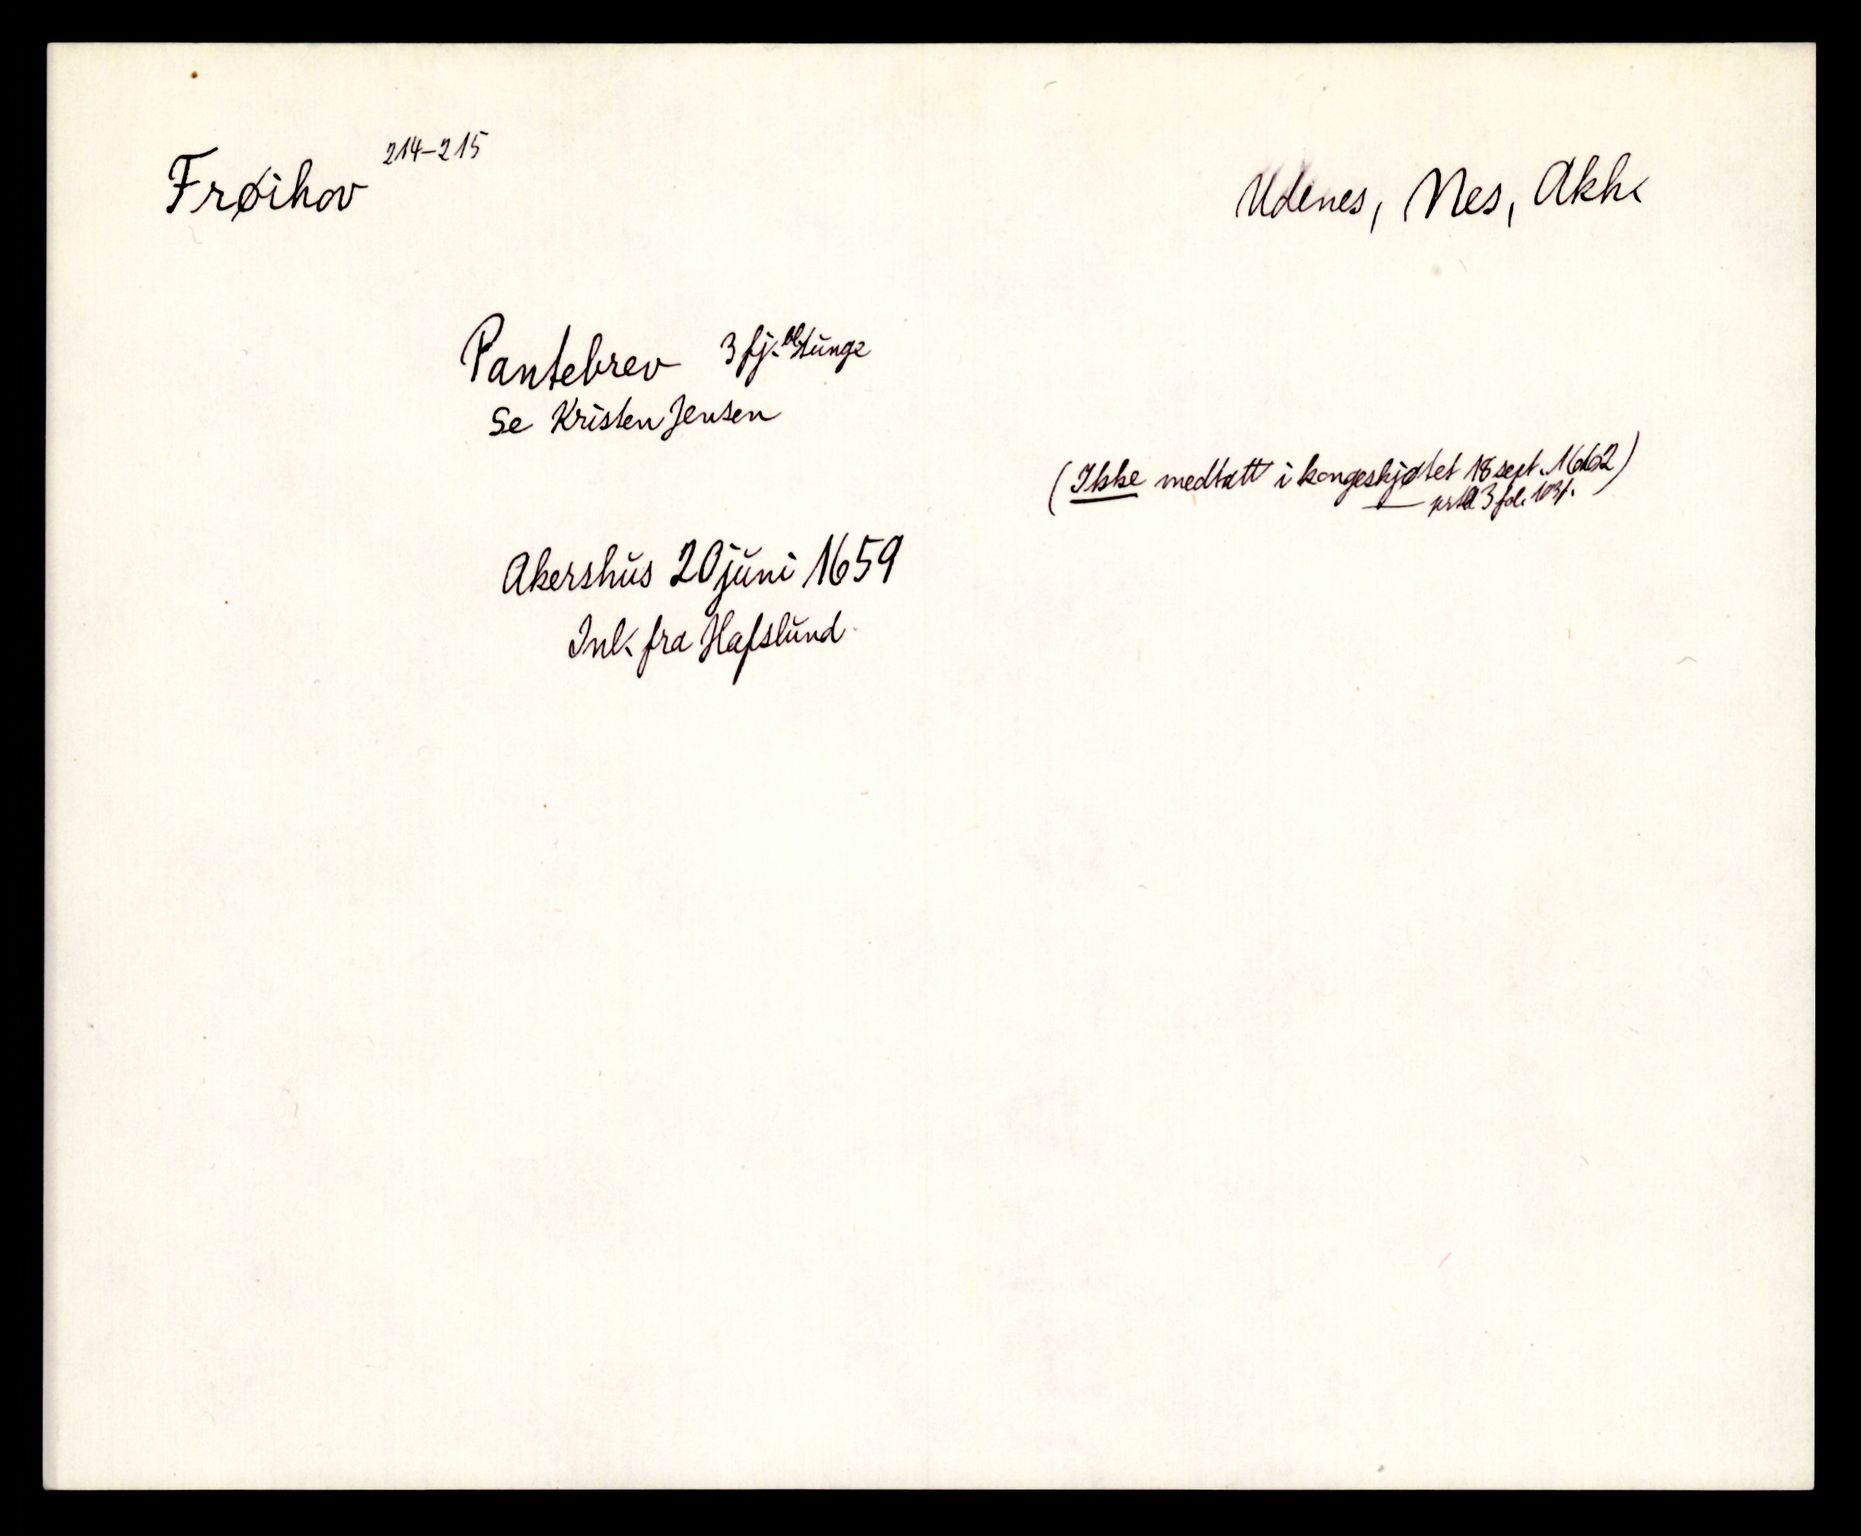 Frøihov 214-215
Udenes, Nes, Akh.
Pantebrev 3 fj. tunge
Se Kristen Jensen
(Ikke medtatt i kongeskjøtet 18 sept. 1662)
3 fol. 103f.
Akershus 20 juni 1659
Inl. fra Hafslund.